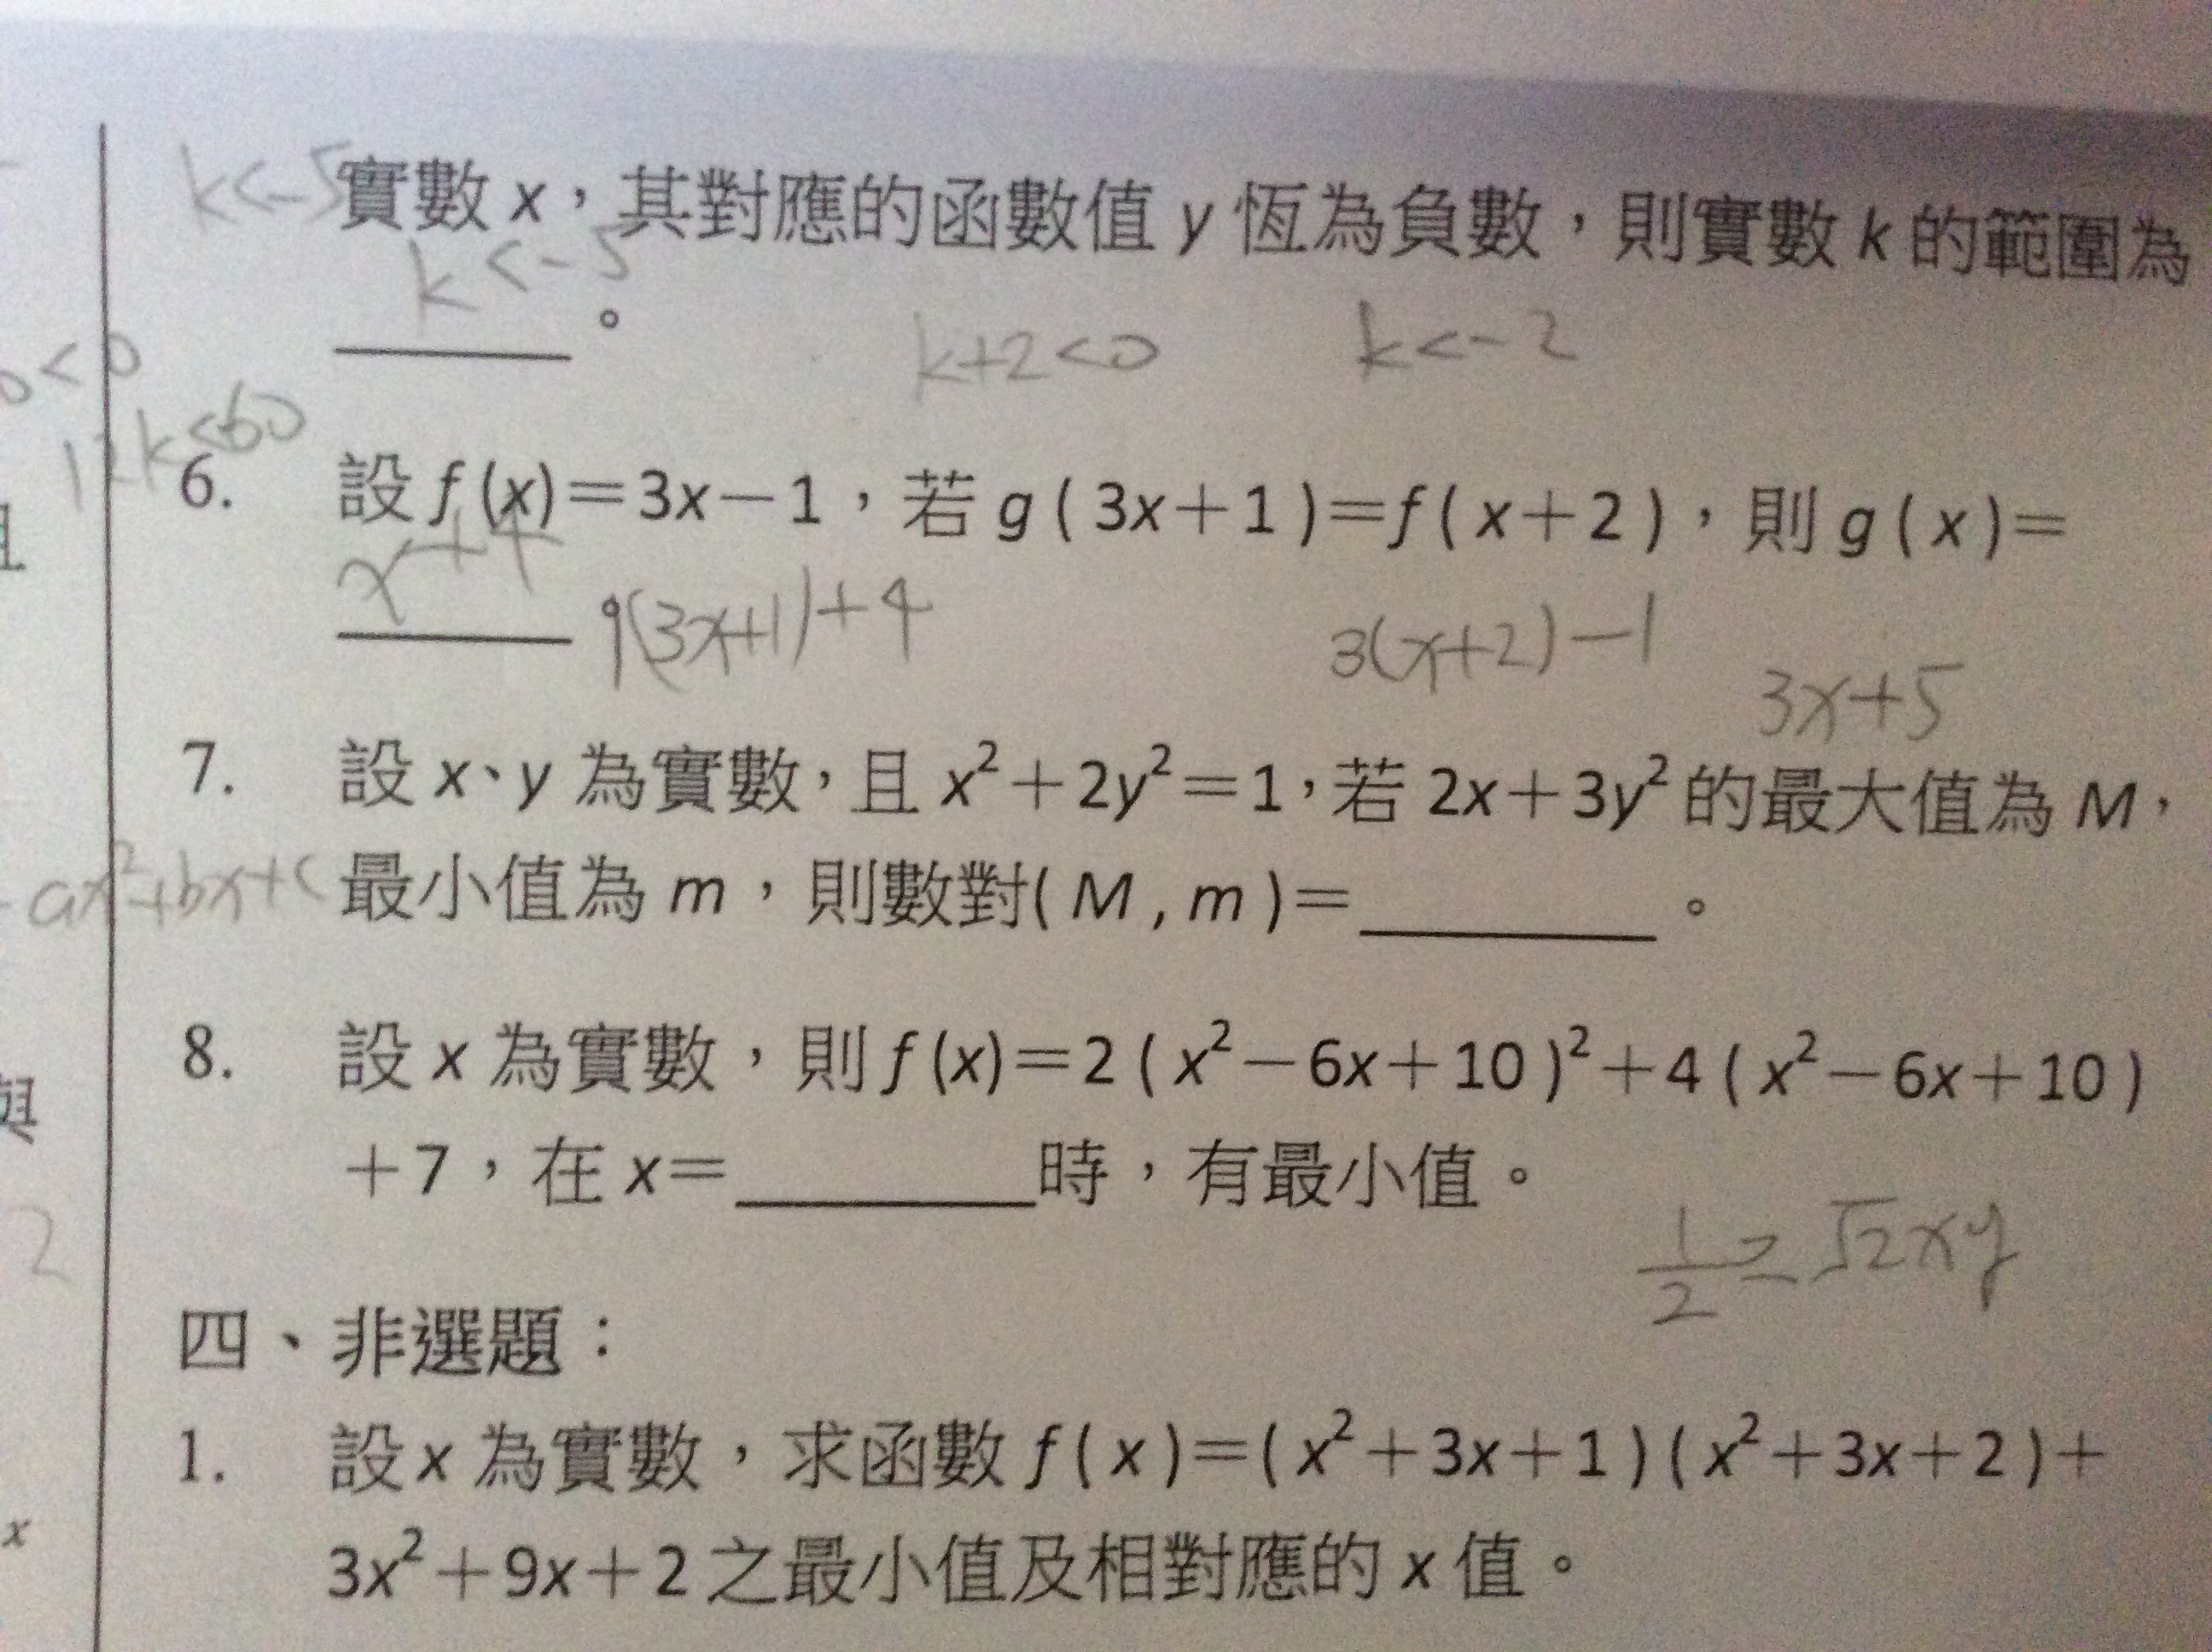 k<-5
實數 x，其對應的函數值 y 恆為負數，則實數 k 的範圍為
k<-5
。
k+2<0 k<-2
<0
12k<60
6. 設 f (x)＝3x－1，若 g ( 3x＋1 )＝f ( x＋2 )，則 g ( x )＝
x+4
。
(3x+1)+4 3(x+2)-1
3x+5
7. 設 x、y 為實數，且 x²＋2y²＝1，若 2x＋3y² 的最大值為 M，
ax²+bx+c
最小值為 m，則數對( M , m )＝________。
8. 設 x 為實數，則 f (x)＝2 ( x²－6x＋10 )²＋4 ( x²－6x＋10 )
＋7，在 x＝________時，有最小值。
2
1/2 ≥ √2xy
四、非選題：
1. 設 x 為實數，求函數 f ( x )＝( x²＋3x＋1 ) ( x²＋3x＋2 )＋
x
3x²＋9x＋2 之最小值及相對應的 x 值。